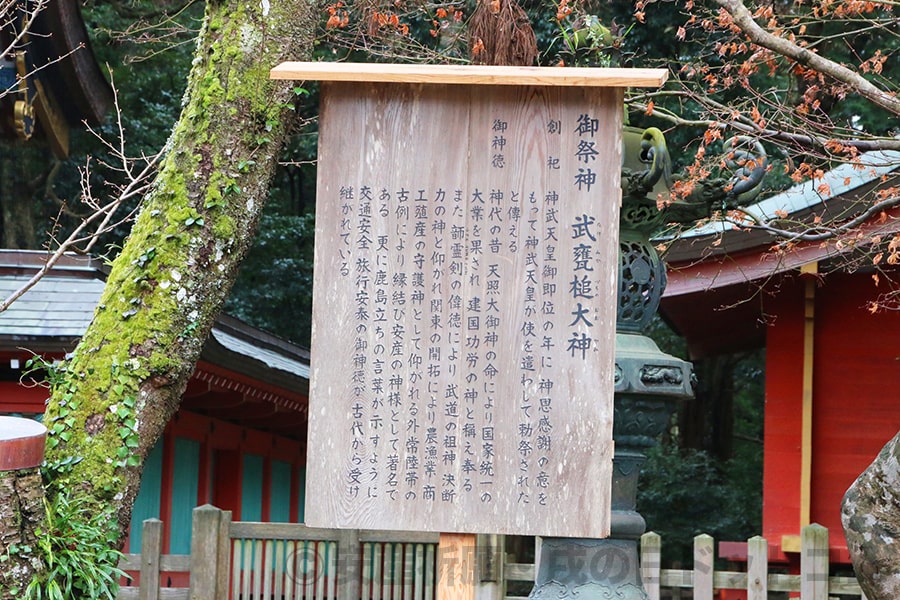 御祭神 武甕槌大神
創祀 神武天皇御即位の年に 神思感謝の意を
もって神武天皇が使を遣わして勅祭された
と傳える
御神徳 神代の昔 天照大御神の命により国家統一の
大業を果され 建国功労の神と称え奉る
また 韴霊剣の偉徳により 武道の祖神 決断
力の神と仰がれ 関東の開拓により 農漁業 商
工殖産の守護神として仰がれる外 常陸帯の
古例により 縁結び安産の神様として著名で
ある 更に鹿島立ちの言葉が示すように
交通安全 旅行安泰の御神徳が 古代から受け
継がれている